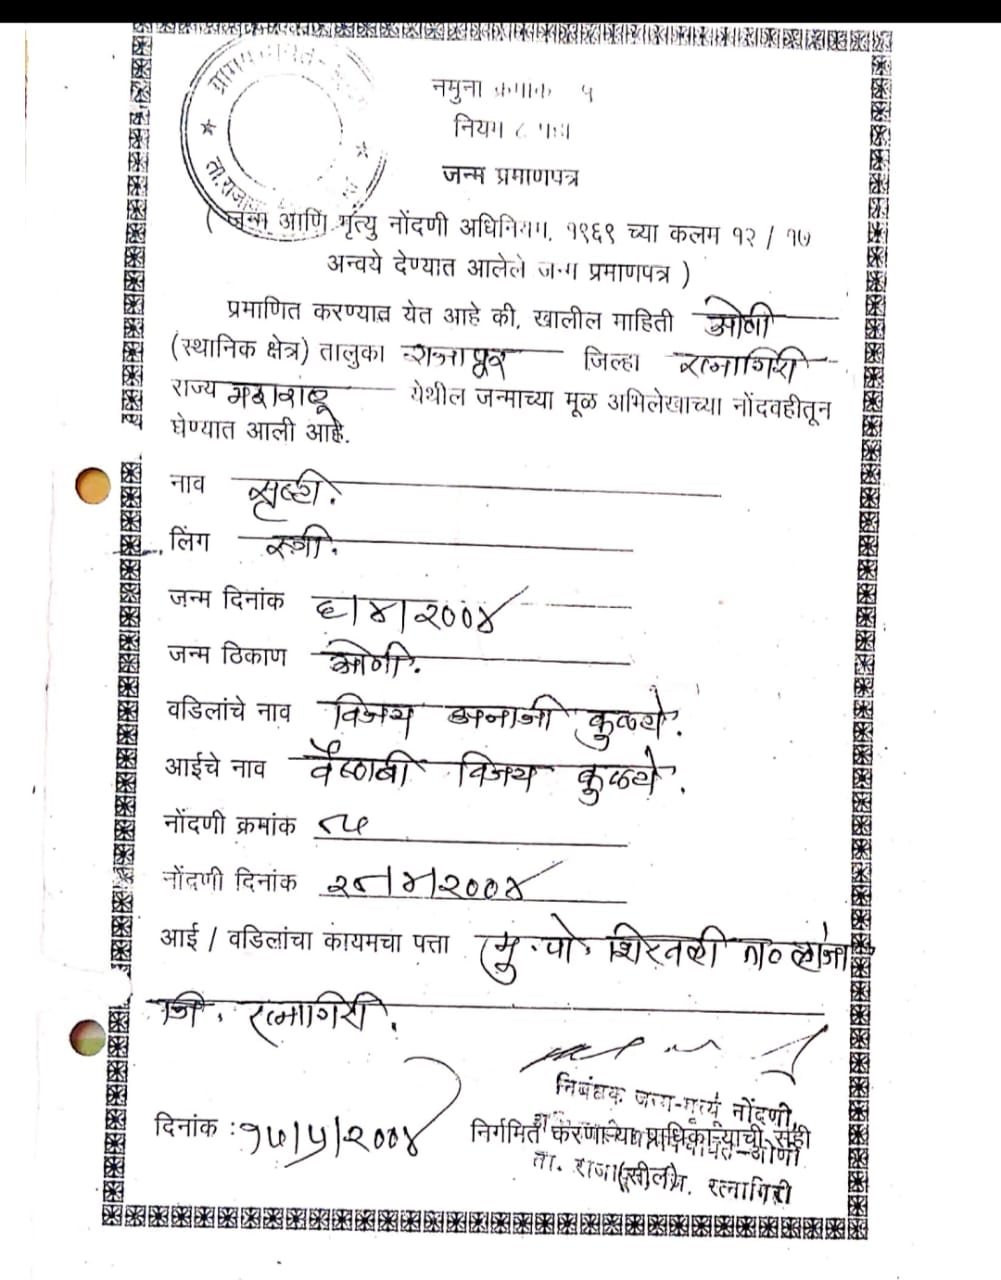 ग्रामपंचायत-
ता.राजा
नमुना क्रमांक ५
नियम ८ पहा
जन्म प्रमाणपत्र
( जन्म आणि मृत्यु नोंदणी अधिनियम, १९६९ च्या कलम १२ / १७
अन्वये देण्यात आलेले जन्म प्रमाणपत्र )
प्रमाणित करण्यात येत आहे की, खालील माहिती ओणी
(स्थानिक क्षेत्र) तालुका राजापूर जिल्हा रत्नागिरी
राज्य महाराष्ट्र येथील जन्माच्या मूळ अभिलेखाच्या नोंदवहीतून
घेण्यात आली आहे.
नाव सृष्टी.
लिंग स्त्री.
जन्म दिनांक ६/४/२००४
जन्म ठिकाण ओणी.
वडिलांचे नाव विजय अनाजी कुळ्ये.
आईचे नाव वैष्णवी विजय कुळ्ये.
नोंदणी क्रमांक
नोंदणी दिनांक /२००४
आई / वडिलांचा कायमचा पत्ता मु. पो. शिरवली ता० लांजा
जि. रत्नागिरी.
निबंधक जन्म-मृत्यू नोंदणी,
दिनांक : १७/५/२००४ निर्गमित करणाऱ्या प्राधिकाऱ्याची सही
ग्रामपंचायत-ओणी
(सील)
ता. राजापूर, जि. रत्नागिरी